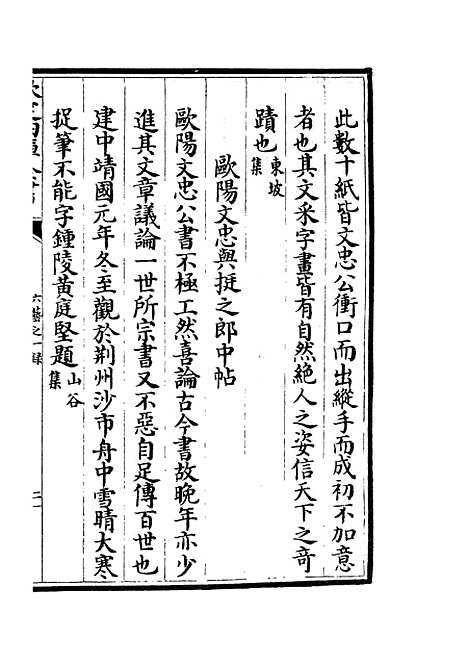 此數十紙皆文忠公衝口而出縱手而成初不加意
者也其文采字畫皆有自然絶人之姿信天下之奇
蹟也東坡集
歐陽文忠與挺之郎中帖
歐陽文忠公書不極工然喜論古今書故晚年亦少
進其文章議論一世所宗書又不惡自足傳百世也
建中靖國元年冬至觀於荆州沙市舟中雪晴大寒
捉筆不能字鍾陵黄庭堅題山谷集
六藝之一録